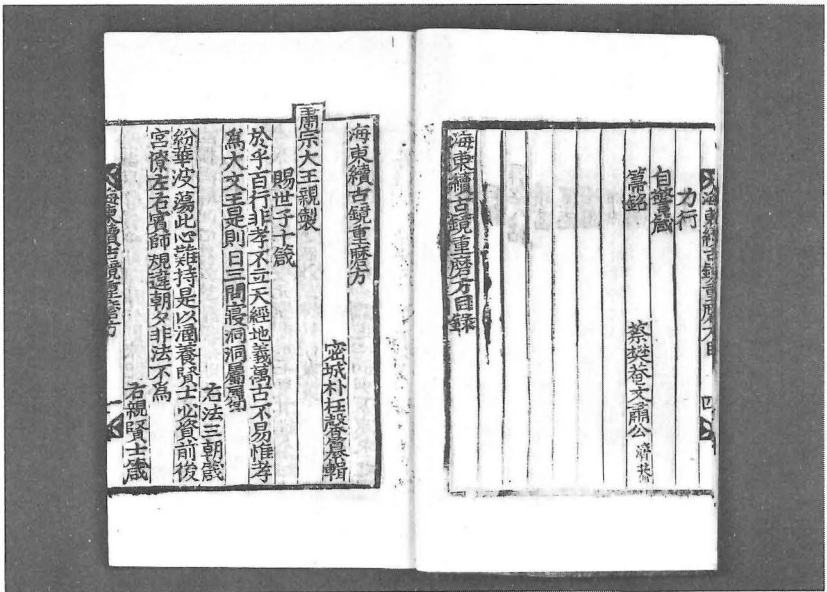 海東續古鏡重磨方目 四
力行
自警箴
篇銘 蔡樊菴文肅公濟恭
海東續古鏡重磨方目錄
海東續古鏡重磨方
密城朴 輯
肅宗大王親製
賜世子十箴
於乎百行非孝不立天經地義萬古不易惟孝
爲大文王是則日三問寢洞洞屬屬
右法三朝箴
紛華波蕩此心難持是以涵養賢士必資前後
宮僚左右賓師規違朝夕非法不爲
右親賢士箴
海東續古鏡重磨方 一